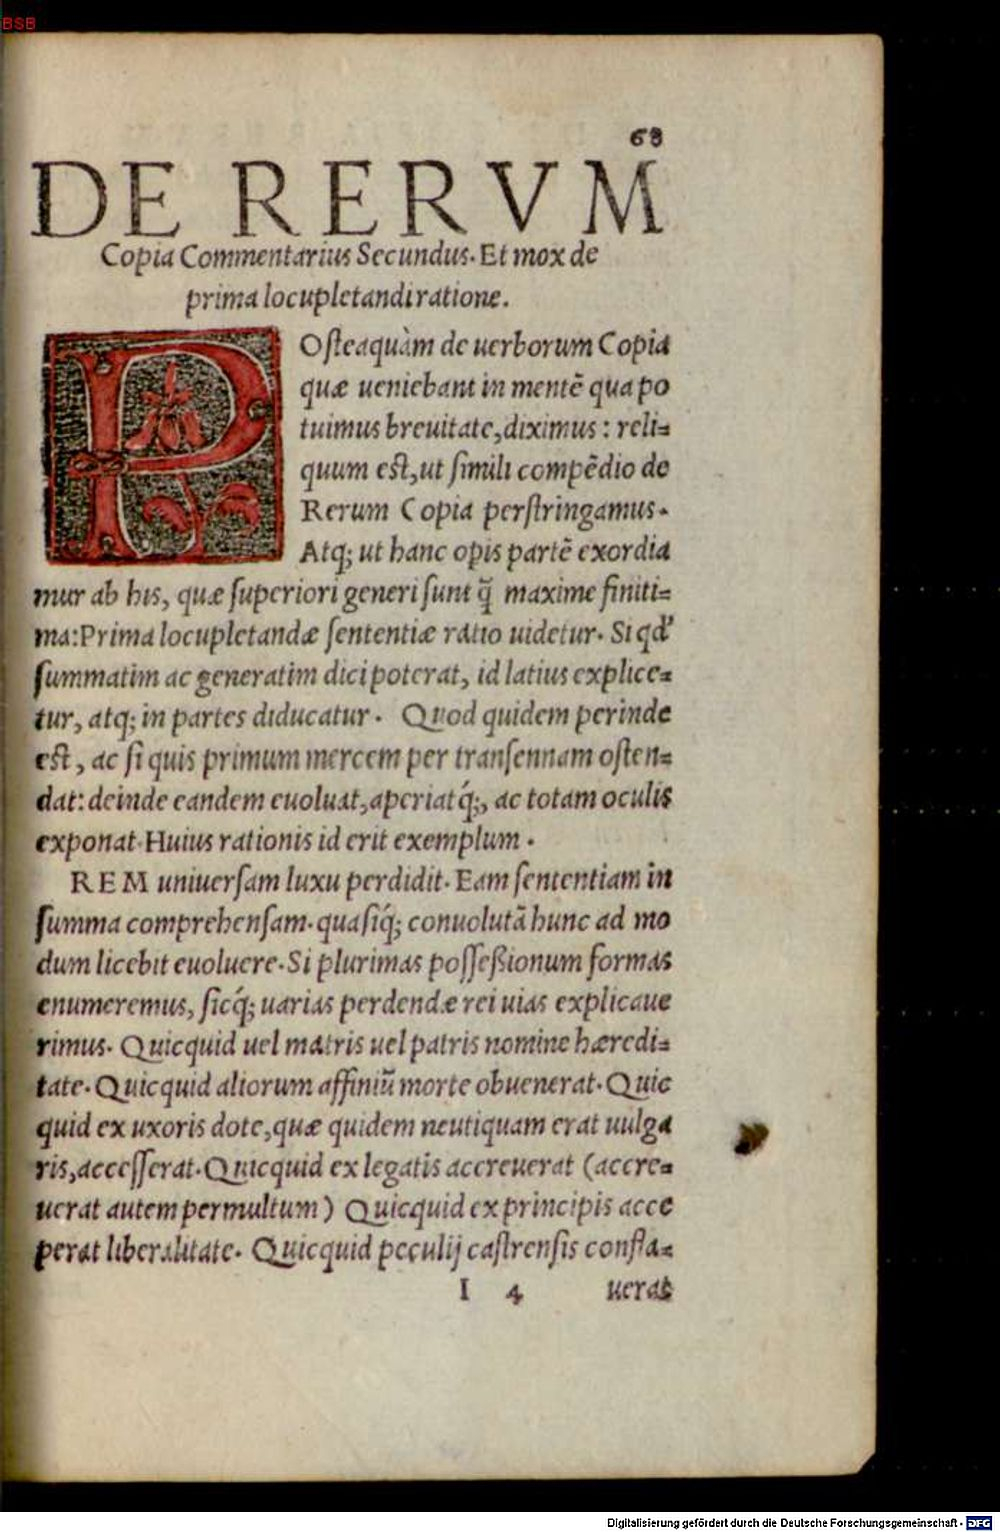 BSB
68
DE RERVM
Copia Commentarius Secundus. Et mox de
prima locupletandi ratione.
POsteaquàm de uerborum Copia
quæ ueniebant in mentē qua po
tuimus breuitate, diximus: reli=
quum est, ut simili compēdio de
Rerum Copia perstringamus.
Atq; ut hanc opis partē exordia
mur ab his, quæ superiori generi sunt q̃ maxime finiti=
ma: Prima locupletandæ sententiæ ratio uidetur. Si qd'
summatim ac generatim dici poterat, id latius explice=
tur, atq; in partes diducatur. Quod quidem perinde
est, ac si quis primum mercem per transennam osten=
dat: deinde eandem euoluat, aperiatq́;, ac totam oculis
exponat. Huius rationis id erit exemplum.
REM uniuersam luxu perdidit. Eam sententiam in
summa comprehensam. quasiq́; conuolutā hunc ad mo
dum licebit euoluere. Si plurimas possessionum formas
enumeremus, sicq́; uarias perdendæ rei uias explicaue
rimus. Quicquid uel matris uel patris nomine hæredi=
tate. Quicquid aliorum affiniū morte obuenerat. Quic
quid ex uxoris dote, quæ quidem neutiquam erat uulga
ris, accesserat. Quicquid ex legatis accreuerat (accre=
uerat autem permultum) Quicquid ex principis acce
perat liberalitate. Quicquid peculij castrensis confla=
I 4 uerat
Digitalisierung gefördert durch die Deutsche Forschungsgemeinschaft - DFG